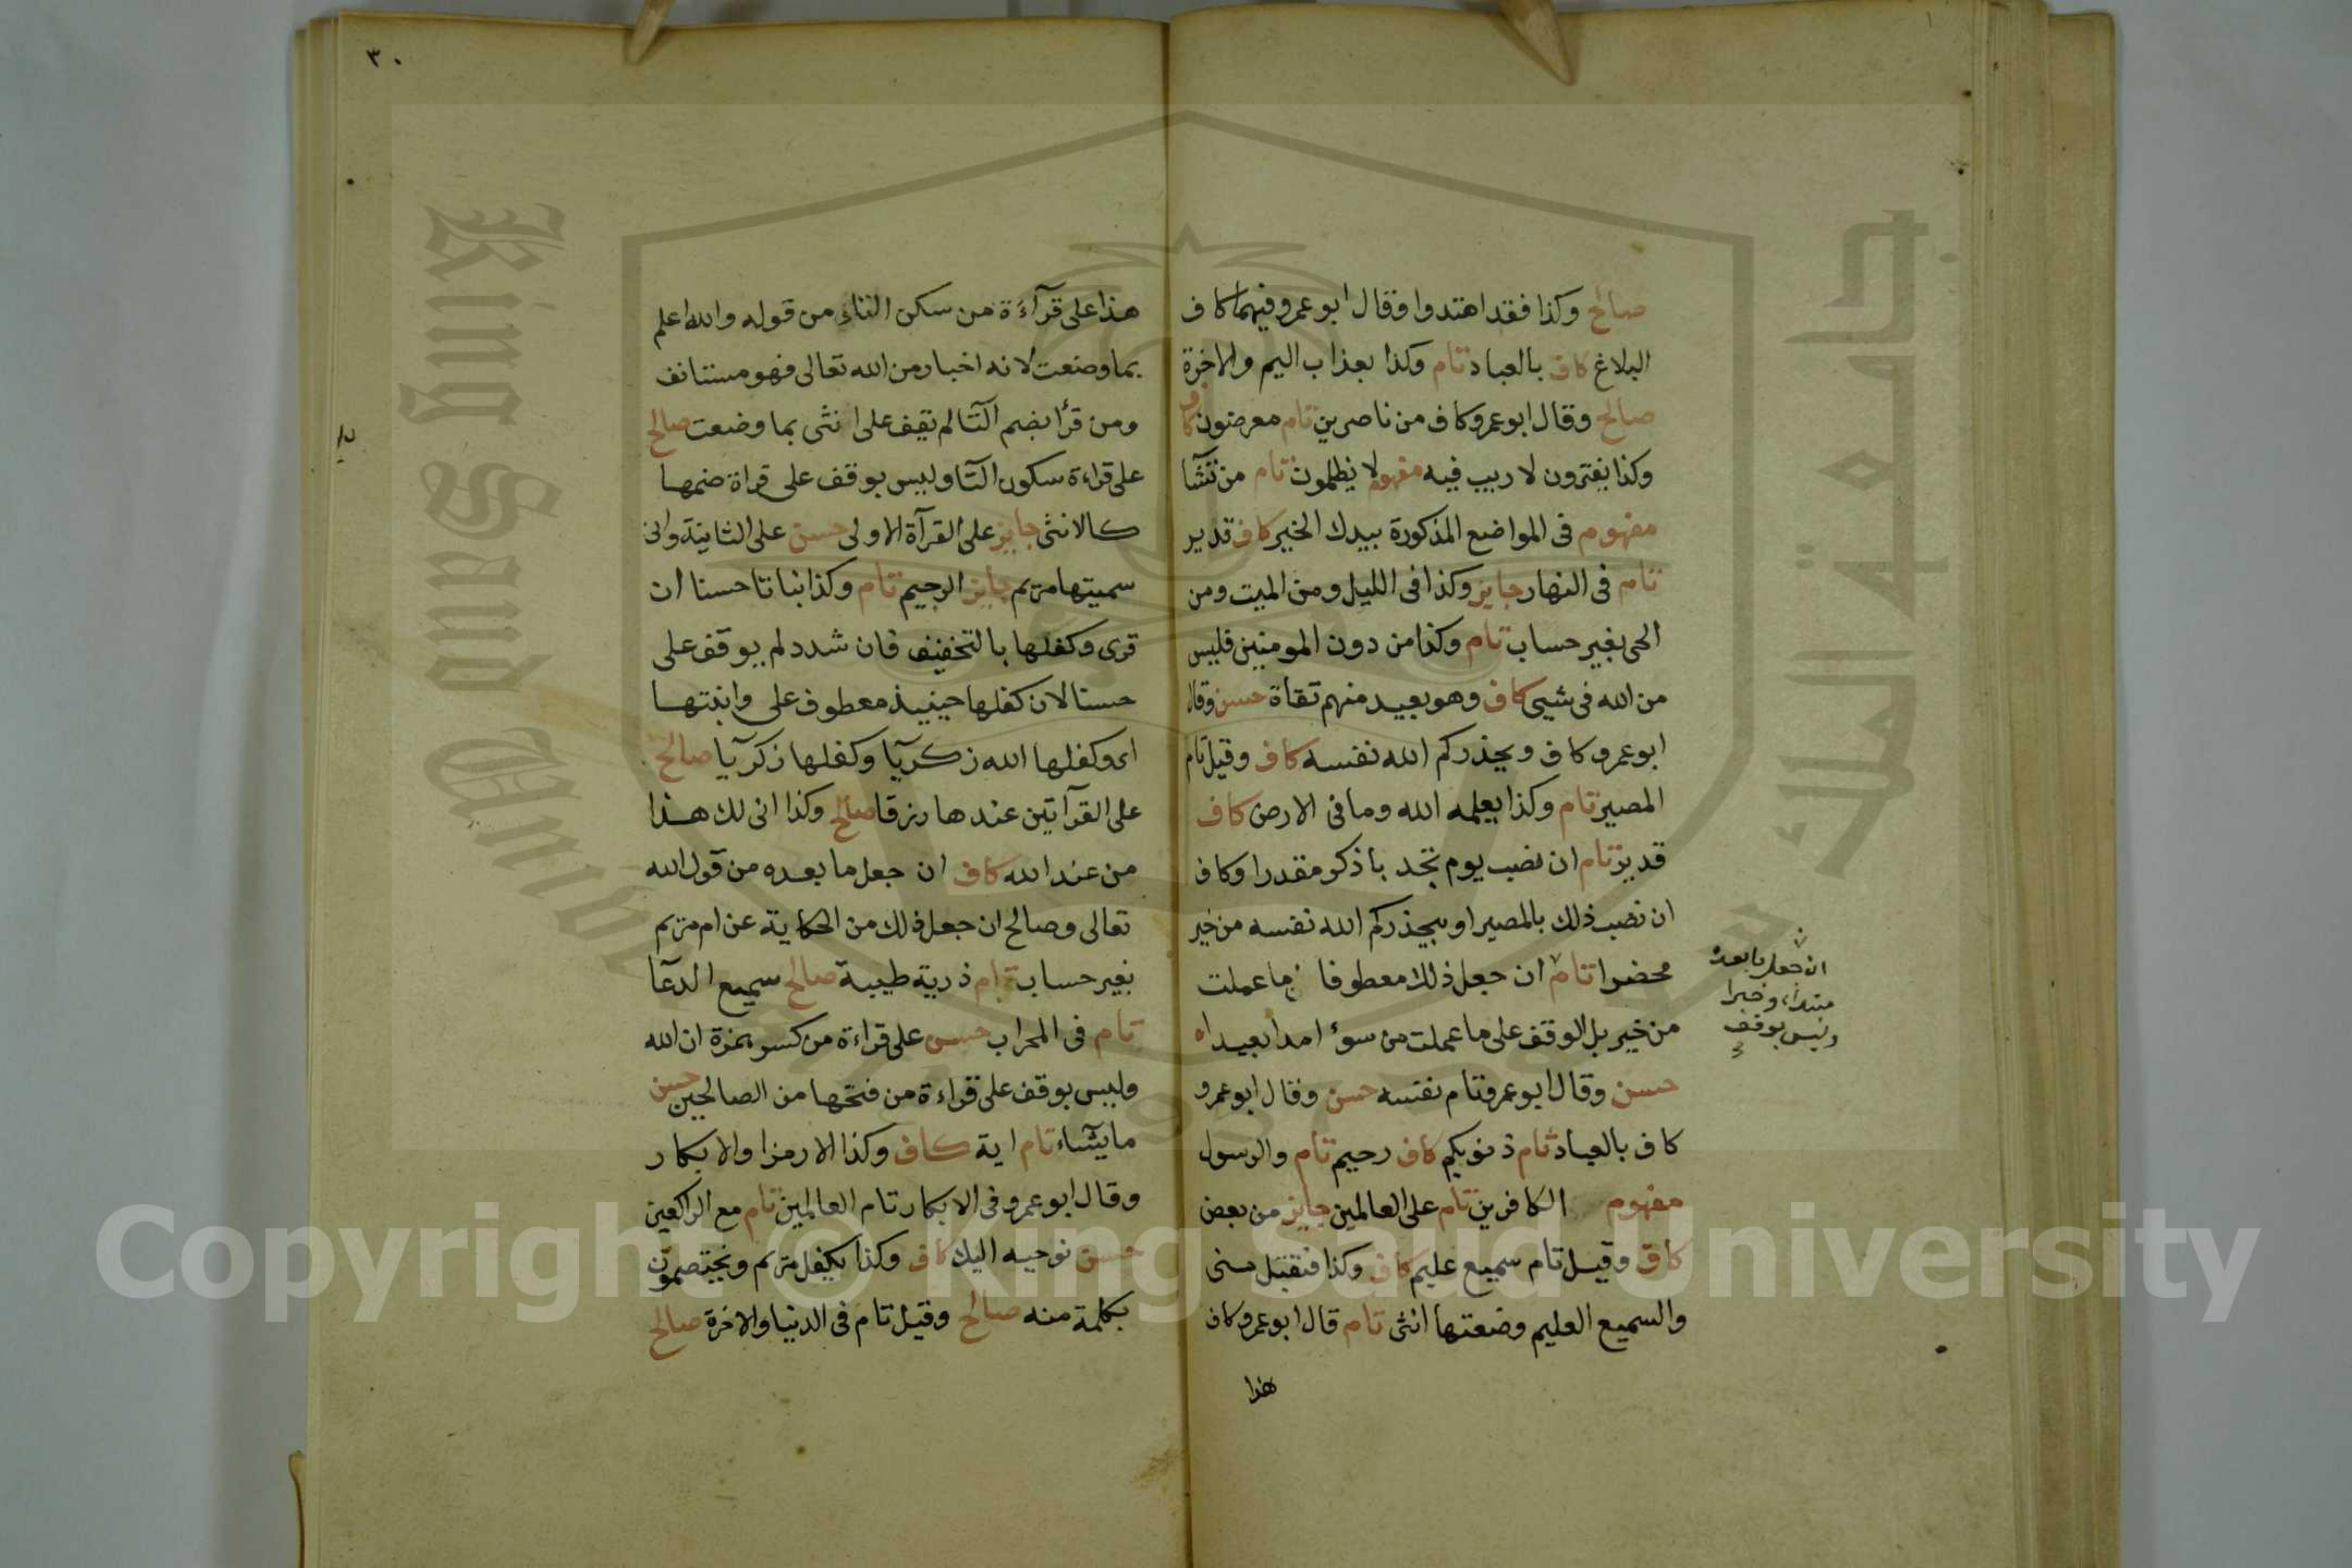 صالح وكذا فقد اهتدوا وقال ابو عمرو فيهما كاف
البلاغ كاف بالعباد تام وكذا بعذاب اليم والاخرة
صالح وقال ابو عمرو كاف من ناصرين تام معرضون كاف
وكذا يفترون لا ريب فيه مفهوم لا يظلمون تام من تشآ
مفهوم فى المواضع المذكورة بيدك الخير كاف قدير
تام فى النهار جايز وكذا فى الليل ومن الميت ومن
الحى بغير حساب تام وكذا من دون المومنين فليس
من الله فى شيى كاف وهو بعيد منهم تقاة حسن وقال
ابو عمرو كاف ويحذركم الله نفسه كاف وقيل تام
المصير تام وكذا يعلمه الله وما فى الارض كاف
قدير تام ان نصب يوم تجد باذكر مقدرا وكاف
ان نصب ذلك بالمصير او بيحذركم الله نفسه من خير
محضرا تام ان جعل ذلك معطوفا ما عملت
من خير بل الوقف على ما عملت من سوٴ امدا بعيدا ه
حسن وقال ابو عمرو تام نفسه حسن وقال ابو عمرو
كاف بالعباد تام ذنوبكم كاف رحيم تام والرسول
مفهوم الكافرين تام على العالمين جايز من بعض
كاف وقيل تام سميع عليم كاف وكذا فتقبل منى
والسميع العليم وضعتها انثى تام قال ابو عمرو كاف
هذا
ان جعل ما بعده
مبتداء وخبرا
وليس بوقف
٣٠
هذا على قرآءة من سكن التاء من قوله والله اعلم
بما وضعت لانه اخبار من الله تعالى فهو مستانف
ومن قرأ بضم التآ لم يقف على انثى بما وضعت صالح
على قراءة سكون التآ وليس بوقف على قراة ضمها
كالانثى جايز على القرآة الاولى حسن على الثانية وانى
سميتها مريم جايز الرجيم تام وكذا نباتا حسنا ان
قرى وكفلها بالتخفيف فان شدد لم يوقف على
حسنا لان كفلها حينيذ معطوف على وانبتها
اى وكفلها الله زكريآ وكفلها زكريآ صالح
على القرآتين عندها رزقا صالح وكذا انى لك هذا
من عند الله كاف ان جعل ما بعده من قول الله
تعالى وصالح ان جعل ذلك من الحكاية عن ام مريم
بغير حساب تام ذرية طيبة صالح سميع الدعآ
تام فى المحراب حسن على قراءة من كسر همزة ان الله
وليس بوقف على قراءة من فتحها من الصالحين حسن
ما يشاء تام اية كاف وكذا الا رمزا والابكار
وقال ابو عمرو فى الابكار تام العالمين تام مع الراكعين
حسن نوحيه اليك كاف وكذا يكفل مريم ويختصمون
بكلمة منه صالح وقيل تام فى الدنيا والاخرة صالح
King Saud University
Copyright © King Saud University